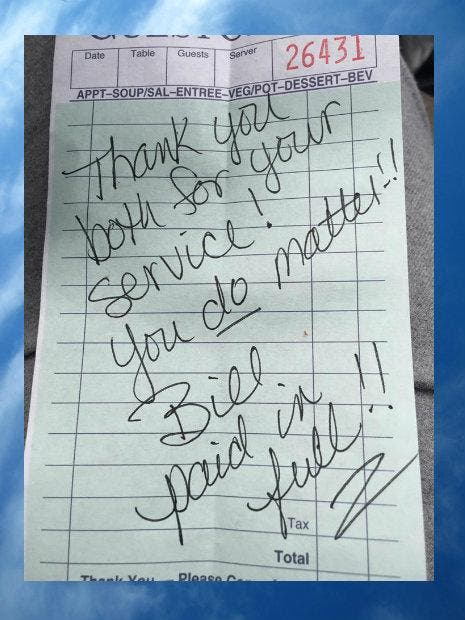 Date Table Guests Server 26431
APPT-SOUP/SAL-ENTREE-VEG/POT-DESSERT-BEV
Thank you
both for your
service!
you do matter!!
Bill
paid in
full!!
Tax
Total
Thank You Please